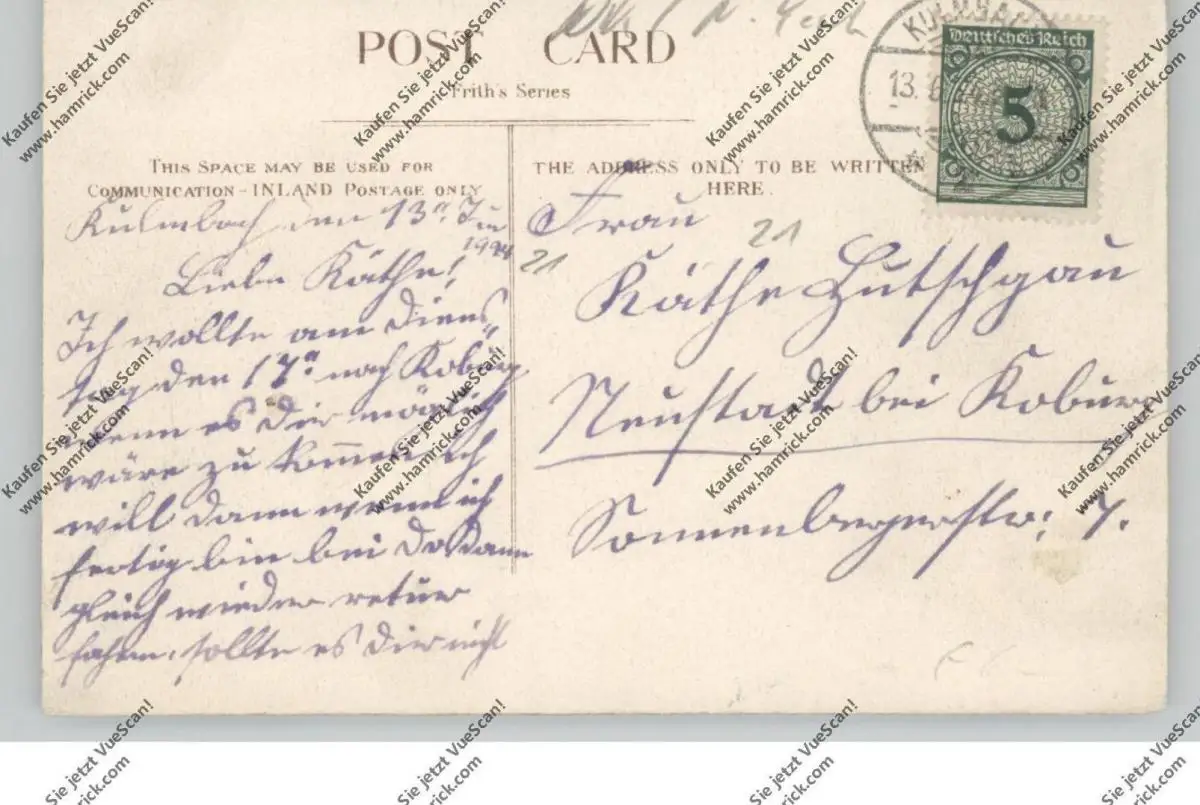 POST CARD
Frith's Series
THIS SPACE MAY BE USED FOR
COMMUNICATION - INLAND POSTAGE ONLY
THE ADDRESS ONLY TO BE WRITTEN
HERE.
KULMBACH
13.
Deutsches Reich
5
Kulmbach den 13. Jun
1924
Liebe Käthe!
Ich wollte am Diens-
tag den 17. nach Koburg
wenn es Dir möglich
wäre zu kommen ich
will dann wenn ich
fertig bin bei Do dann
gleich wieder retuer
fahren. sollte es Dir nicht
Frau
21
21
Käthe
Neustadt bei Koburg
Sonnenbergerstr: 7.
Kaufen Sie jetzt VueScan!
www.hamrick.com